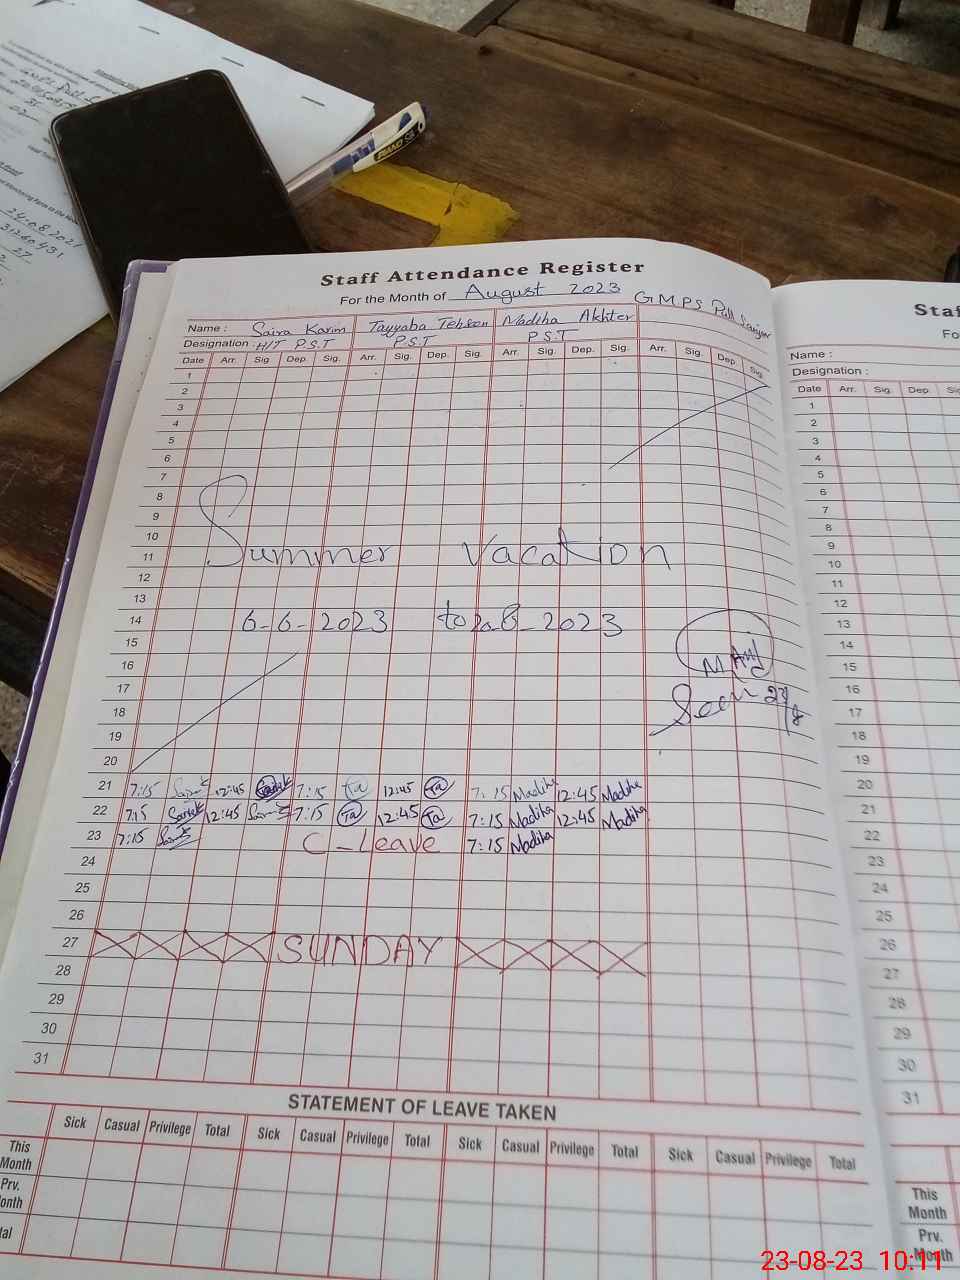 24-08-2021
31260431
27
PIANO
Staff Attendance Register
For the Month of August 2023
Name : Saira Karim Tayyaba Tehseen Madiha Akhter GMPS Pull Sanjar
Designation : H/T P.S.T P.S.T P.S.T
Date Arr. Sig. Dep. Sig. Arr. Sig. Dep. Sig. Arr. Sig. Dep. Sig. Arr. Sig. Dep. Sig.
1
2
3
4
5
6
7
8
9
10
11 Summer Vacation
12
13
14 6-6-2023 to 20.8-2023
15
16
17
Seen 23/8
18
19
20
21 7:15 12:45 7:15 Ta 12:45 Ta 7:15 Madiha 12:45 Madiha
22 7:15 12:45 7:15 Ta 12:45 Ta 7:15 Madiha 12:45 Madiha
23 7:15 C-Leave 7:15 Madiha
24
25
26
27 SUNDAY
28
29
30
31
STATEMENT OF LEAVE TAKEN
Sick Casual Privilege Total Sick Casual Privilege Total Sick Casual Privilege Total Sick Casual Privilege Total
This Month
Prv.
Name :
Designation :
Date Arr. Sig. Dep.
1
2
3
4
5
6
7
8
9
10
11
12
13
14
15
16
17
18
19
20
21
22
23
24
25
26
27
28
29
30
31
This
Month
Prv.
Month
23-08-23 10:11